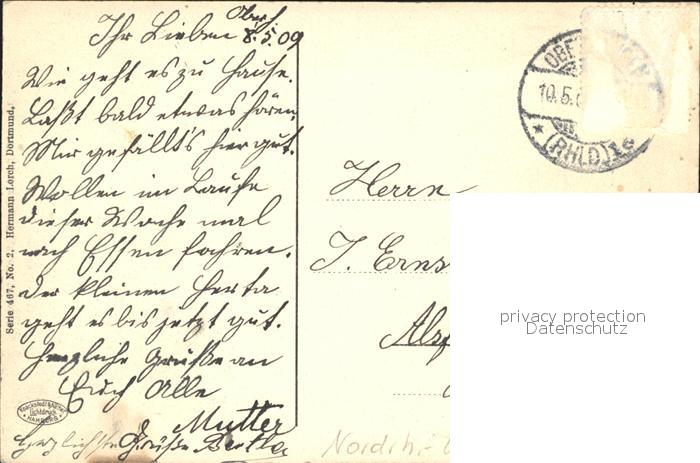 Oberh.
Ihr Lieben 8.5.09
Wie geht es zu Hause.
Laßt bald etwas hören.
Mir gefällt's hier gut.
Wollen im Laufe
dieser Woche mal
nach Essen fahren.
Der kleinen Herta
geht es bis jetzt gut.
Herzliche Grüße an
Euch Alle
Mutter
Herzlichste Grüße Bertha
Serie 467, No. 2, Hermann Lorch, Dortmund.
Lichtdruck
HAMBURG
OBE
10.5.0
(RHLD)
Herrn
J. Erns
Alzf
Nordrh.-
privacy protection
Datenschutz